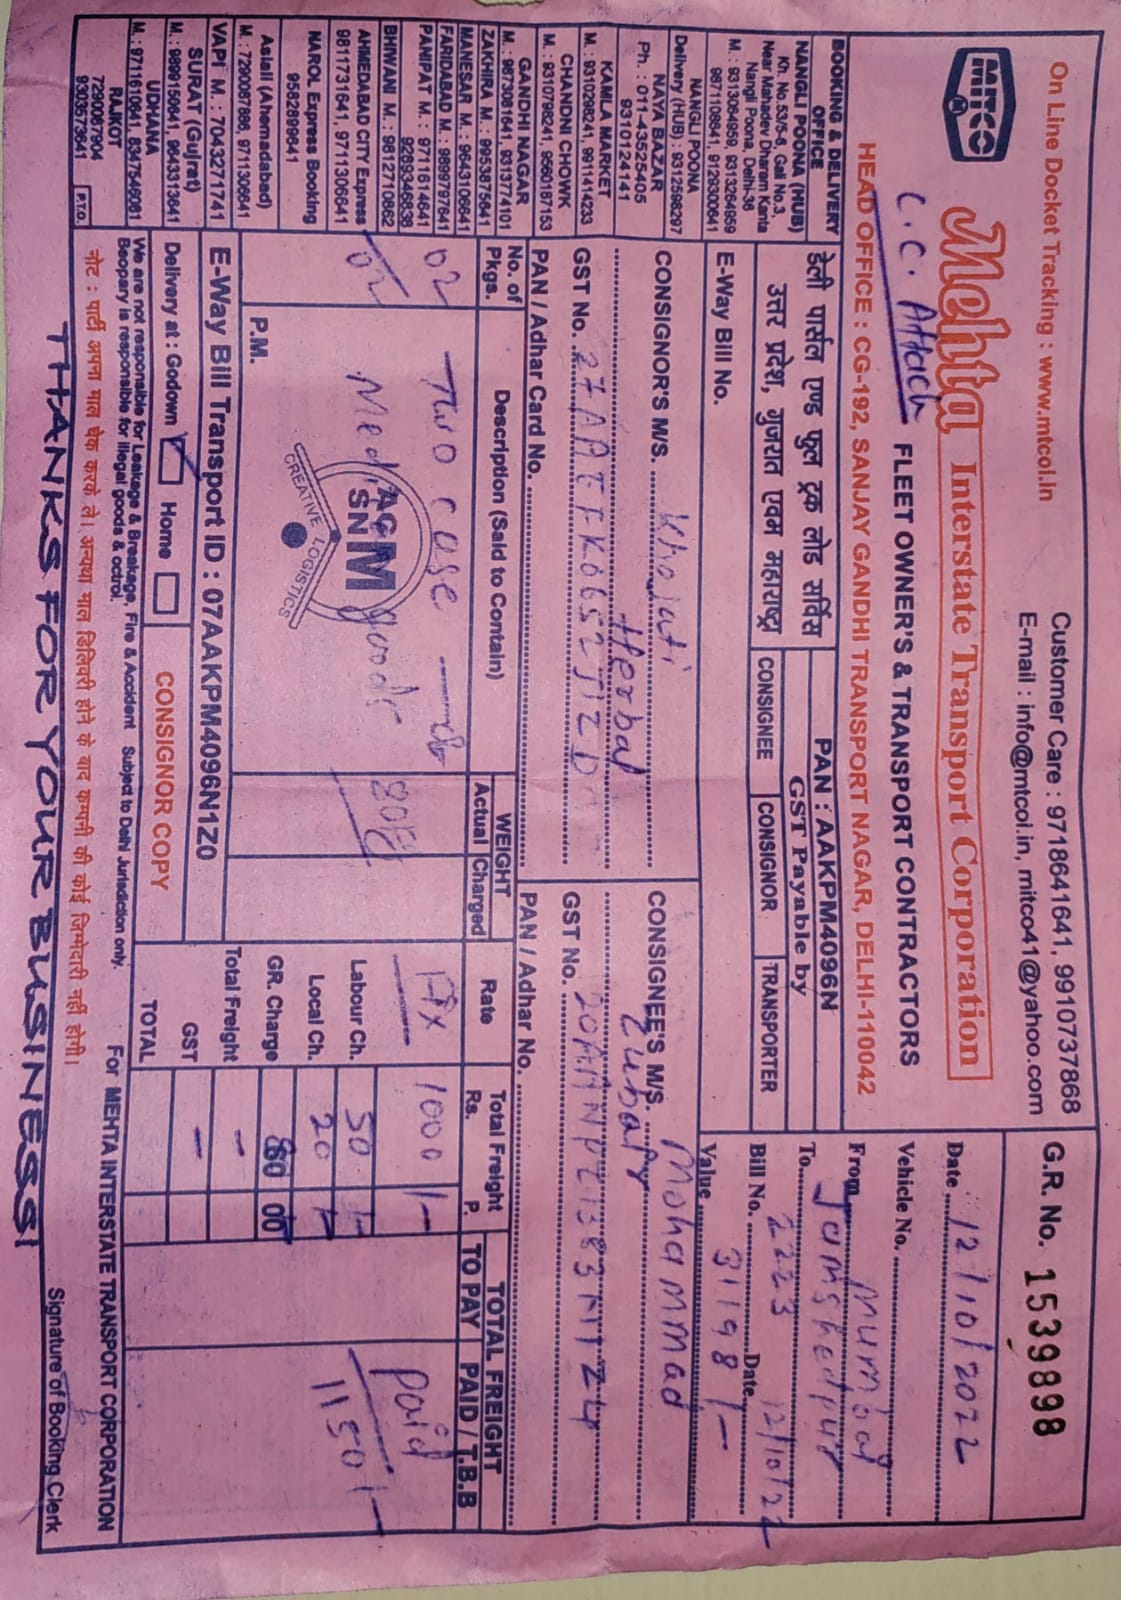 On Line Docket Tracking : www.mtcol.in
Customer Care : 9718641641, 9910737868
E-mail : info@mtcol.in, mitco41@yahoo.com
MITCO
Mehta Interstate Transport Corporation
C.C. Attach
FLEET OWNER'S & TRANSPORT CONTRACTORS
HEAD OFFICE : CG-192, SANJAY GANDHI TRANSPORT NAGAR, DELHI-110042
G.R. No. 1539898
Date 12/10/2022
Vehicle No.
From Mumbai
To Jamshedpur
Bill No. 2223 Date 12/10/22
Value 31198/-
BOOKING & DELIVERY
OFFICE
NANGLI POONA (HUB)
Kh. No. 53/5-8, Gali No.3,
Near Mahadev Dharam Kanta
Nangli Poona, Delhi-36
M. : 9313064959, 9313264959
9871108641, 9128300641
NANGLI POONA
Delivery (HUB) : 9312598297
NAYA BAZAR
Ph. : 011-43525405
9310124141
KAMLA MARKET
M. : 9310298241, 9911414233
CHANDNI CHOWK
M. : 9310798241, 9560187153
GANDHI NAGAR
M. : 9873081641, 9313774101
ZAKHIRA M. : 9953875641
MANESAR M. : 9643106641
FARIDABAD M. : 9899787641
PANIPAT M. : 9711614641
9289346838
BHIWANI M. : 9812710862
AHMEDABAD CITY Express
9811731641, 9711306641
NAROL Express Booking
9582899641
Aslali (Ahemadabad)
M. : 7290087886, 9711306641
VAPI M. : 7043271741
SURAT (Gujrat)
M. : 98991150941, 9643313641
UDHANA
M. : 9711610841, 8347546081
RAJKOT
7290087904
9303573641
P.T.O.
डेली पार्सल एण्ड फुल ट्रक लोड सर्विस
उत्तर प्रदेश, गुजरात एवम महाराष्ट्र
PAN : AAKPM4096N
GST Payable by
CONSIGNEE CONSIGNOR TRANSPORTER
E-Way Bill No.
CONSIGNOR'S M/S. Khojati
Herbal
GST No. 27AAEFK0652J1ZD
PAN / Adhar Card No.
CONSIGNEES M/S. Mohammad
Zubair
GST No.
PAN / Adhar No.
No. of Pkgs.
Description (Said to Contain)
WEIGHT
Actual Charged
Rate
Total Freight
Rs. P.
TOTAL FREIGHT
TO PAY PAID / T.B.B
02 Two case
Med, goods
02
AC
SN M
CREATIVE LOGISTICS
Fix 1000 /-
Paid
1150/-
Labour Ch. 50 /-
Local Ch. 20
GR. Charge 80 00
Total Freight -
GST -
TOTAL
P.M.
E-Way Bill Transport ID : 07AAKPM4096N1Z0
Delivery at : Godown Home
CONSIGNOR COPY
We are not responsible for Leakage & Breakage, Fire & Accident Subject to Delhi Jurisdiction only.
Beopary is responsible for illegal goods & octroi.
For MEHTA INTERSTATE TRANSPORT CORPORATION
नोट : पार्टी अपना माल चेक करके ले। अन्यथा माल डिलिवरी होने के बाद कम्पनी की कोई जिम्मेदारी नहीं होगी।
THANKS FOR YOUR BUSINESS!
Signature of Booking Clerk